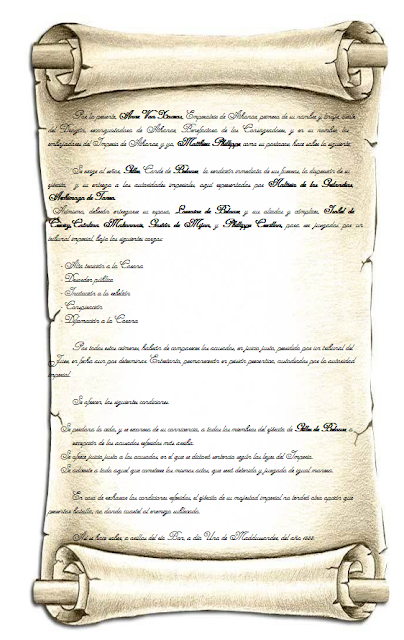 Por la presente, Anne Van
del Dragón, reconquistadora de Athanae, Benefactora de los Consagradores, y en su nombre los
embajadores del Imperio de Athanae y yo, Matthew Phillippe como su portavoz, hace saber lo siguiente:
Se exige al señor, Gilles, Conde de Belouse, la rendición inmediata de sus fuerzas, la disposición de su
ejército, y su entrega a las autoridades imperiales, aquí representadas por
Archimaga de
Asimismo, deberán entregarse su esposa, de Belouse, y sus aliados y cómplices, de
y Philippe para ser juzgados por un
tribunal imperial, bajo los siguientes cargos:
- Alta traición a la Corona
- Desorden público
- Incitación a la rebelión
- Conspiración
- Difamación a la Corona
Por todos estos crímenes, habrán de comparecer los acusados, en juicio justo, presidido por un tribunal del
Juez, en fecha aun por determinar. Entretanto, permanecerán en prisión preventiva, custodiados por la autoridad
imperial.
Se ofrecen, las siguientes condiciones:
Se perdona la vida, y se exonera de su connivencia, a todos los miembros del ejército de Gilles de Belouse, a
excepción de los acusados referidos más arriba.
Se ofrece juicio justo a los acusados, en el que se dictará sentencia según las leyes del Imperio.
Se advierte a todo aquel que cometiese los mismos actos, que será detenido y juzgado de igual manera.
En caso de rechazar las condiciones referidas, el ejército de su majestad imperial no tendrá otra opción que
presentar batalla, no dando cuartel al enemigo sublevado.
Así se hace saber, a orillas del río a día Uno de del año